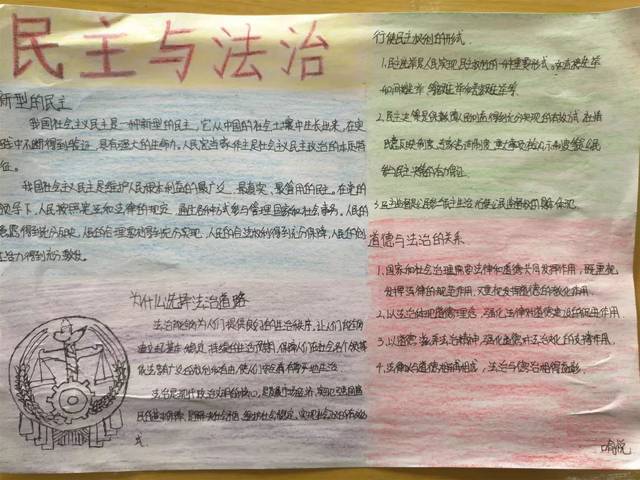 民主与法治
新型的民主
我国社会主义民主是一种新型的民主，它从中国的社会土壤中生长出来，在实
践中不断得到验证，具有强大的生命力。人民当家作主是社会主义民主政治的本质特
征。
我国社会主义民主是维护人民根本利益的最广泛、最真实、最管用的民主。在党的
领导下，人民按照宪法和法律的规定，通过各种方式参与管理国家和社会事务。人民的
意愿得到充分反映，人民的合理要求得到充分实现，人民的合法权利得到充分保障，人民的创
造活力得到充分激发。
为什么选择法治道路
法治能够为人们提供良好的生活秩序，让人们
建立起基本、稳定、持续的生活预期，保障人们在社会各个领域
依法享有广泛的权利和自由，使人们
法治是现代政治文明的核心，是
民的基本保障，是解决社会矛盾、维护社会稳定、实现社会
行使民主权利的形式
1.民主选举是人民实现民主权利的一种重要形式，有直接选举
和间接选举、等额选举和差额选举等。
2.民主决策是保障人民利益得到充分实现的有效方式，社情
民意反映制度、专家咨询制度、重大事项社会公示制度等
参与民主决策
3.民主监督是公民参与民主生活
道德与法治的关系
1.国家和社会治理需要法律和道德共同发挥作用，既重视
发挥法律的规范作用，又重视发挥道德的教化作用
2.以法治体现道德理念，强化法律对道德建设的促进作用
3.以道德滋养法治精神，强化道德对法治文化的支撑作用
4.法律与道德相辅相成，法治与德治相得益彰。